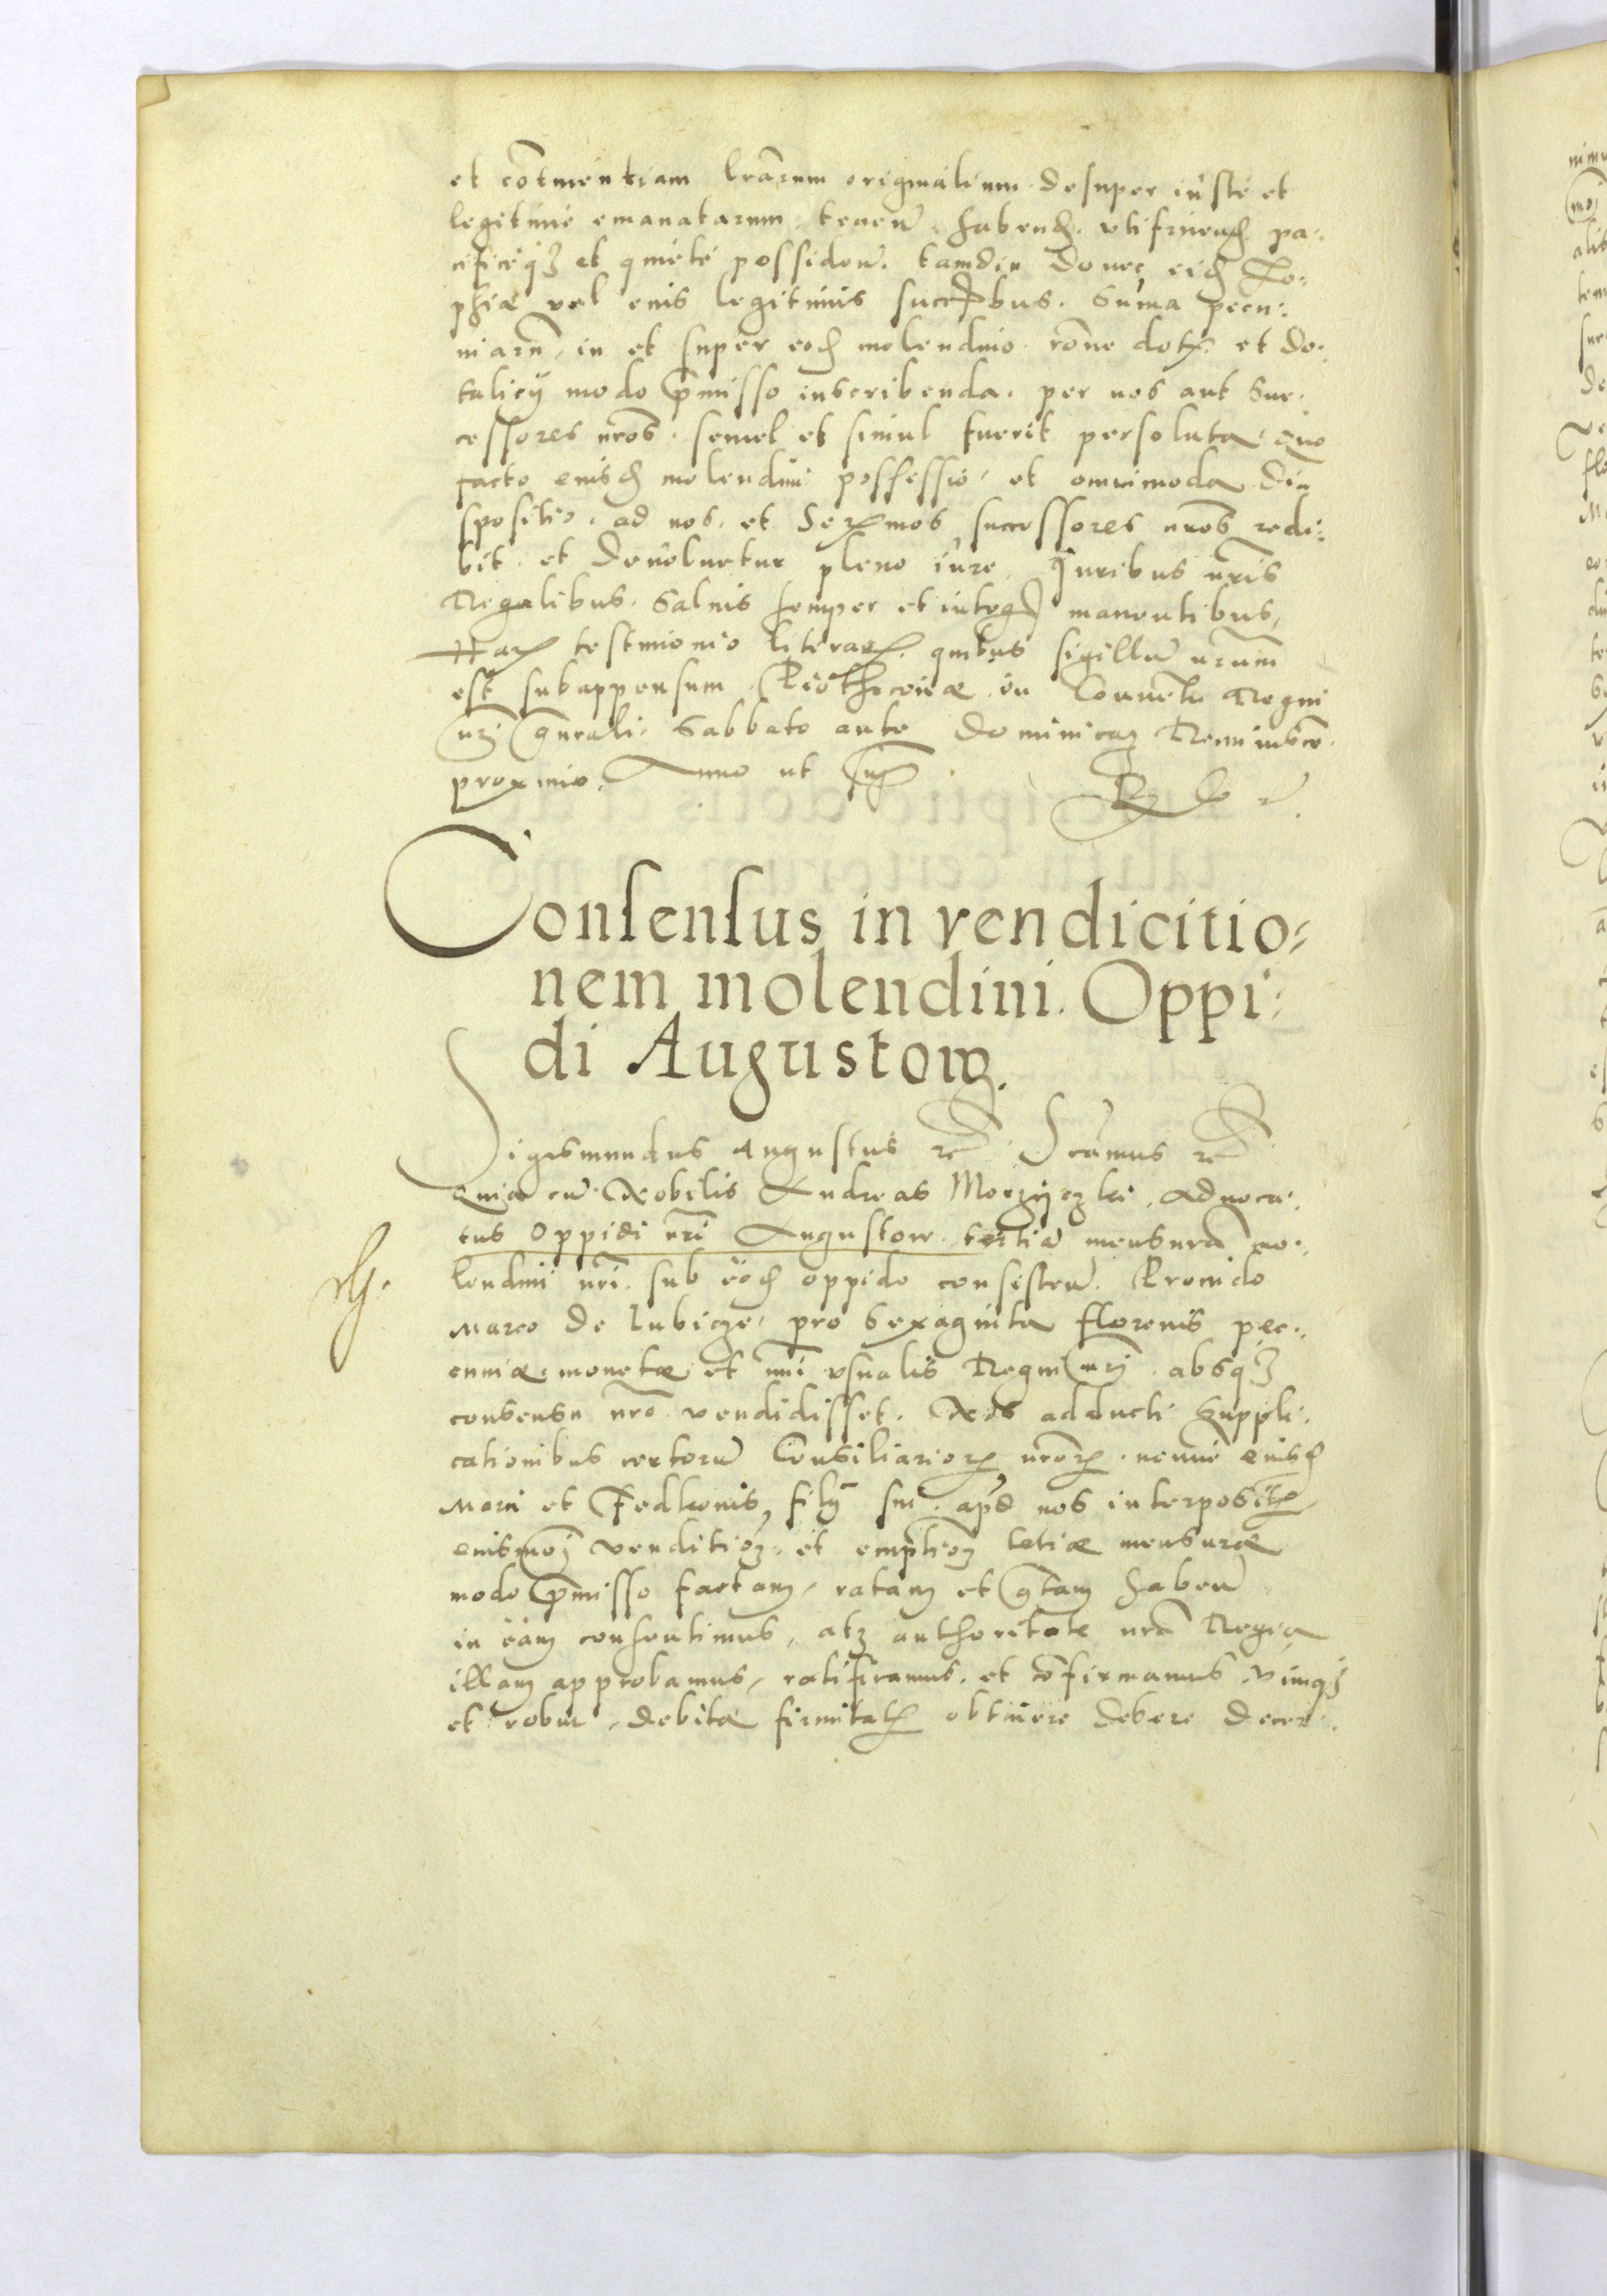 et cōtinentiam lrārum originalium desuper iuste et
legitime emanatarum, tenen̄. habend. utifruend. pa:
cificeqȝ et quiete possiden̄. tamdiu donec eid So:
phiæ vel eius legitimis succbus. Sum̄a pecu:
niarū, in et super eod molendino rōne dotꝭ et do:
talicij modo p̄misso inscribenda. per nos aut Suc:
cessores nros̄. semel et simul fuerit persoluta. quo
facto eiusd molendini possessio, et omnimoda di
spositio, ad nos, et Serꝭmos successores nros̄ redi:
bit. et devoluetur pleno iure. Juribus nrīs
Regalibus. Salvis semper et integꝭ manentibus,
Harꝭ testimonio literarꝭ. quibus sigillū nrum̄
est subappensum. Piothrcoviæ in Conventu Regni
nrī gn̄rali. Sabbato ante Dominicaȝ Reminiscē.
proximo. Anno ut supra
Consensus in vendicitio:
nem molendini. Oppi:
di Augustow.
Sigismundus augustus etc Scamus etc
Quia cū Nobilis Andreas Moczyczki. Advoca:
tus Oppidi nrī Augustow tertiā mensurā mo:
lendini nrī. sub eod oppido consisten̄. Provido
Marco de Lubicze, pro sexaginta florenis pec:
cuniæ, monetæ et nrī usualis Regni nrī. absqȝ
consensu nrō vendidisset. Nos adducti Suppli:
cationibus certorū Consiliariorꝭ nrōrꝭ. nec non eiusd
Marci et Fedkonis filij sui. apd nos interpositꝭ
eiusmōi venditioȝ. et emptioȝ tertiæ mensuræ
modo p̄misso factam, ratam et grātam haben̄
in eam consentimus, atȝ authoritate nrā Regia
illam approbamus, ratificamus, et cōfirmamus. Vimqȝ
et robur, debitæ firmitatꝭ obtinere debere decer: